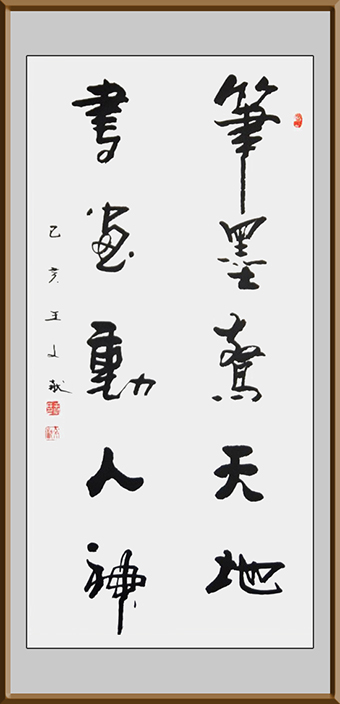 筆墨驚天地
書画動人神
乙亥王文献